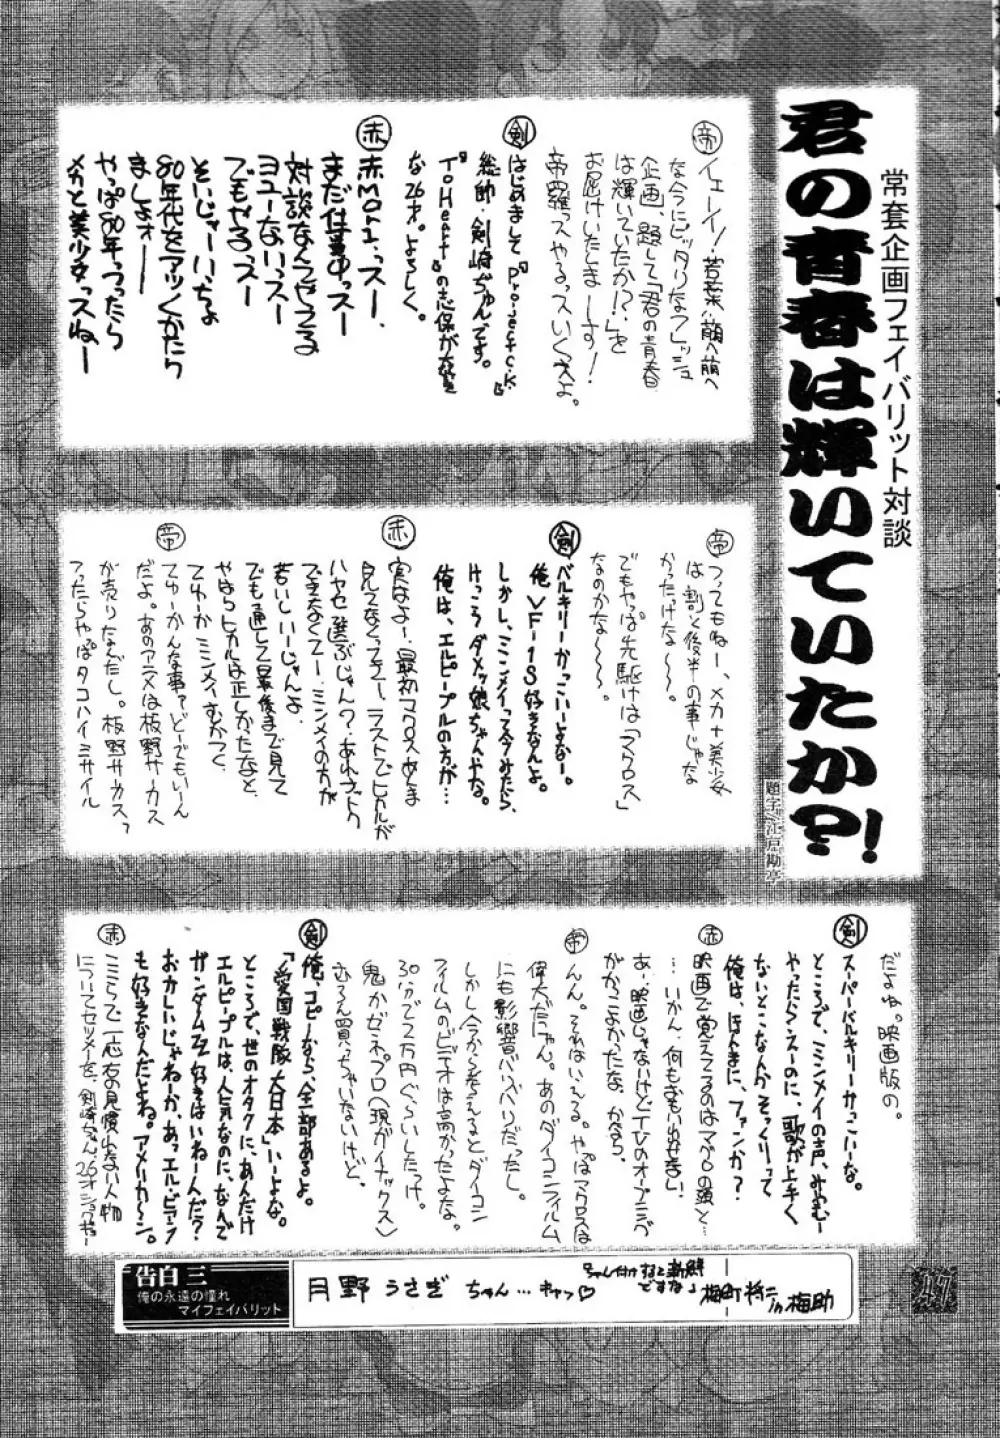 常套企画フェイバリット対談
君の青春は輝いていたか?!
題字/江戸勘亭
帝 イェーイ!若葉ハ萌へ萌へ
な今にピッタリなフレッシュ
企画、題して「君の青春
は輝いていたか!?」を
お届けいたしまーす!
帝羅っスやるっスいくスよ。
剣 はじめまして『Project.C.K.』
総帥・剣崎ぢゅんです。
『ToHeart』の志保が大好き
な26才。よろしく。
赤 赤Marいっスー
まだ仕事中っスー
対談なんてやってる
ヨユーないっスー
でもやるっスー
そいじゃーいっちょ
80年代をアツくかたり
ましょォー
やっぱ80年っつったら
メカと美少女っスねー
帝 つってもねー、メカ+美少女
は割と後半の事じゃな
かったっけな〜〜。
でもやっぱ先駆けは「マクロス」
なのかな〜〜。
剣 バルキリーかっこいーよなー。
俺、VF-1S好きなんよ。
しかし、ミンメイって今みたら、
けっこうダメッ娘ちゃんやな。
俺は、エルピープルの方が…
赤 実はよー、最初マクロスあんま
見てなくってェー、ラストでヒカルが
ハヤセ選ぶじゃん?あれナットク
できなくてー、ミンメイの方が
若いしいーじゃんよ。
でも通して最後まで見て
やはりヒカルは正しかったなと。
てゆーかミンメイむかつく。
帝 てゆーかんな事ァどーでもいーん
だよ。あのアニメは板野サーカス
が売りなんだし。板野サーカス?
つったらやっぱタコハイミサイル
だよね。映画版の。
剣 スーパーバルキリーかっこいーな。
ところで、ミンメイの声、みょーな
やったらンスーのに、歌が上手く
ないとこなんかそっくりって
俺は、ほんきに、ファンか?
赤 映画で覚えてるのはマグロの頭と
…いかん、何もおもい出せない
あ、映画じゃないけどTVのオープニング
がかっこよかったな。かべら。
帝 んん。それはいえる。やっぱマクロスは
偉大だにゃん。あのダイコンフィルム
にも影響バリバリだったし。
しかし今から考えるとダイコン
フィルムのビデオは高かったよな。
30分で2万円ぐらいしたっけ。
鬼かゼネプロ(現ガイナックス)
むろん買っちゃいないけど。
剣 俺、コピーなら、全部あるよ。
「愛国戦隊大日本」いーよな。
ところで、世のオタクに、あんだけ
エルピープルは、人気なのに、なんで
ガンダムZZ好きはいねーんだ?
おかしいじゃねーか、あっエル・ビアンノ
も好きなんだよね。アメリカ〜ン。
赤 ここらで一応お見慣れない人物
についてセツメーを。剣崎ちゃん26才
告白三
俺の永遠の憧れ
マイフェイバリット
月野うさぎちゃん…キャッ♡
ちゃん付けすると新鮮
ですなぁ
梅町裕二
in梅助
47